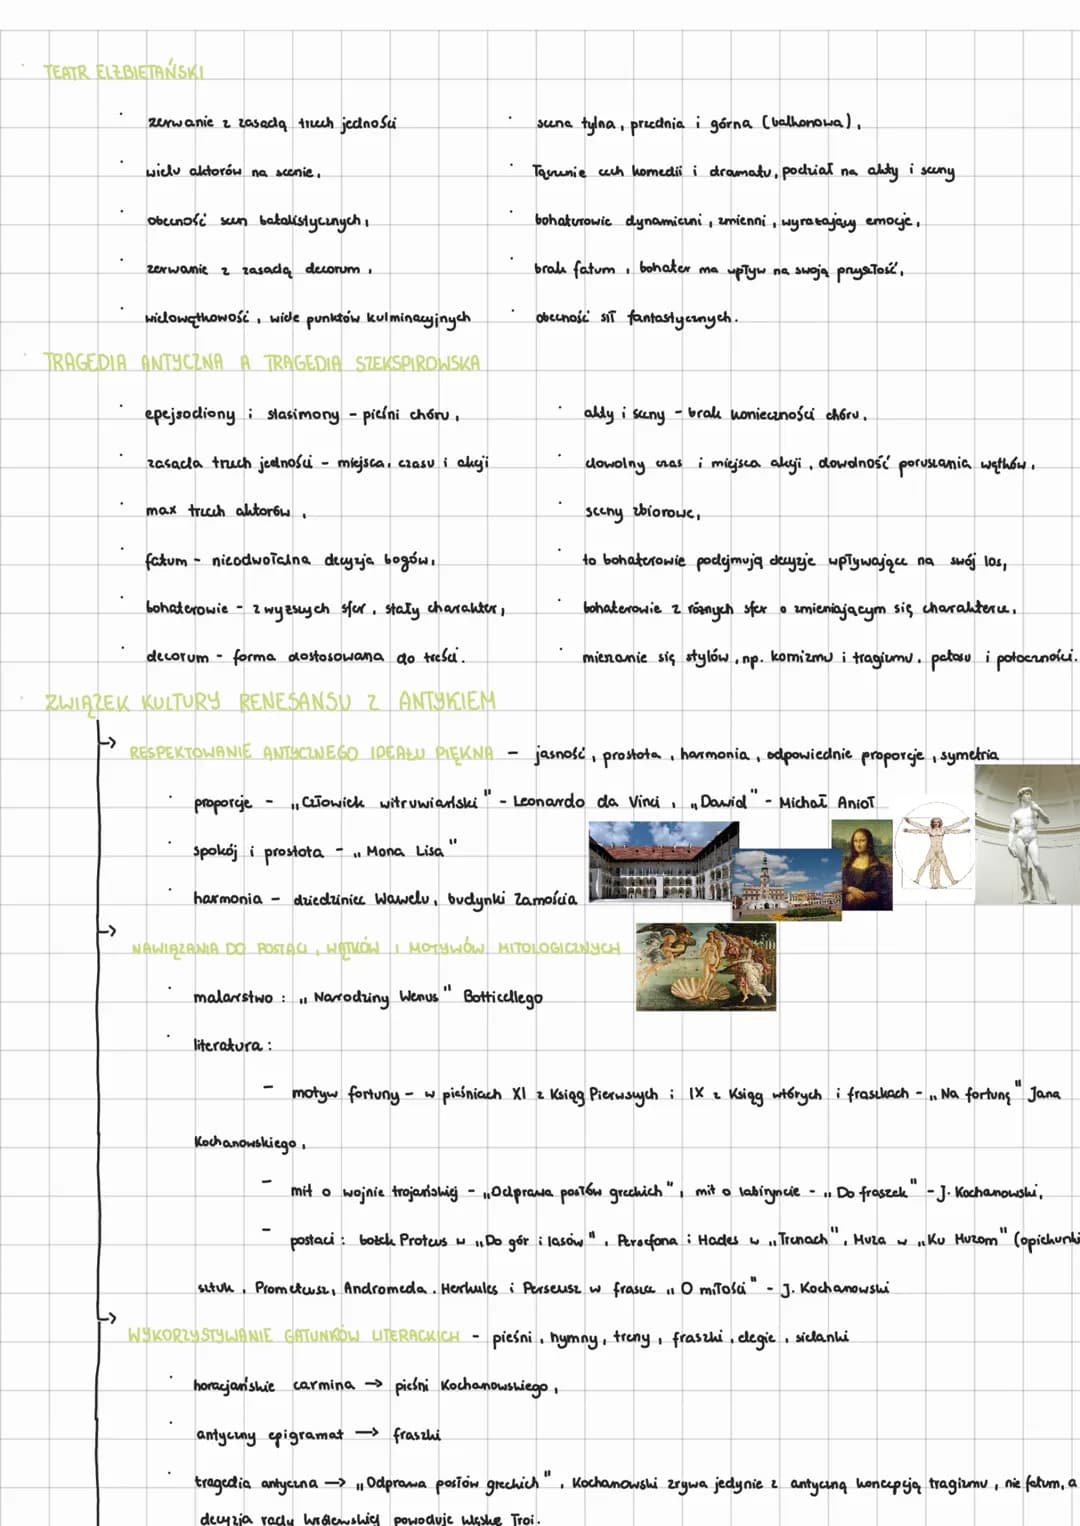 TEATR ELŻBIETAŃSKI
zerwanie z zasadą trzech jedności
wielu aktorów na scenie,
obecność scen batalistycznych,
zerwanie z zasadą decorum,
wielowątkowość, wiele punktów kulminacyjnych
scena tylna, przednia i górna (balkonowa),
Łączenie cech komedii i dramatu, podział na akty i sceny
bohaterowie dynamiczni, zmienni, wyrażający emocje,
brak fatum, bohater ma wpływ na swoją przyszłość,
obecność sił fantastycznych.
TRAGEDIA ANTYCZNA A TRAGEDIA SZEKSPIROWSKA
epejsodiony i stasimony - pieśni chóru,
zasada trzech jedności - miejsca, czasu i akcji
max trzech aktorów,
fatum - nieodwołalna decyzja bogów,
bohaterowie - z wyższych sfer, stały charakter,
decorum - forma dostosowana do treści.
akty i sceny - brak konieczności chóru,
dowolny czas i miejsca akcji, dowolność poruszania wątków,
sceny zbiorowe,
to bohaterowie podejmują decyzje wpływające na swój los,
bohaterowie z różnych sfer o zmieniającym się charakterze,
mieszanie się stylów, np. komizmu i tragizmu, patosu i potoczności.
ZWIĄZEK KULTURY RENESANSU Z ANTYKIEM
RESPEKTOWANIE ANTYCZNEGO IDEAŁU PIĘKNA - jasność, prostota, harmonia, odpowiednie proporcje, symetria
proporcje - „Człowiek witruwiański" - Leonardo da Vinci, „Dawid" - Michał Anioł
spokój i prostota - „Mona Lisa"
harmonia - dziedziniec Wawelu, budynki Zamościa
NAWIĄZANIA DO POSTACI, WĄTKÓW I MOTYWÓW MITOLOGICZNYCH
malarstwo: „Narodziny Wenus" Botticellego
literatura:
- motyw fortuny - w pieśniach XI z Ksiąg Pierwszych i IX z Ksiąg wtórych i fraszkach - „Na fortunę" Jana
Kochanowskiego,
- mit o wojnie trojańskiej - „Odprawa posłów greckich", mit o labiryncie - „Do fraszek" - J. Kochanowski,
- postaci: bożek Proteus w „Do gór i lasów", Persefona i Hades w „Trenach", Muza w „Ku Muzom" (opiekunki
sztuk, Prometeusz, Andromeda, Herkules i Perseusz w fraszce „O miłości" - J. Kochanowski
WYKORZYSTYWANIE GATUNKÓW LITERACKICH - pieśni, hymny, treny, fraszki, elegie, sielanki
horacjańskie carmina → pieśni Kochanowskiego,
antyczny epigramat → fraszki
tragedia antyczna → „Odprawa posłów greckich", Kochanowski zrywa jedynie z antyczną koncepcją tragizmu, nie fatum, a
decyzja rady królewskiej powoduje klęskę Troi.